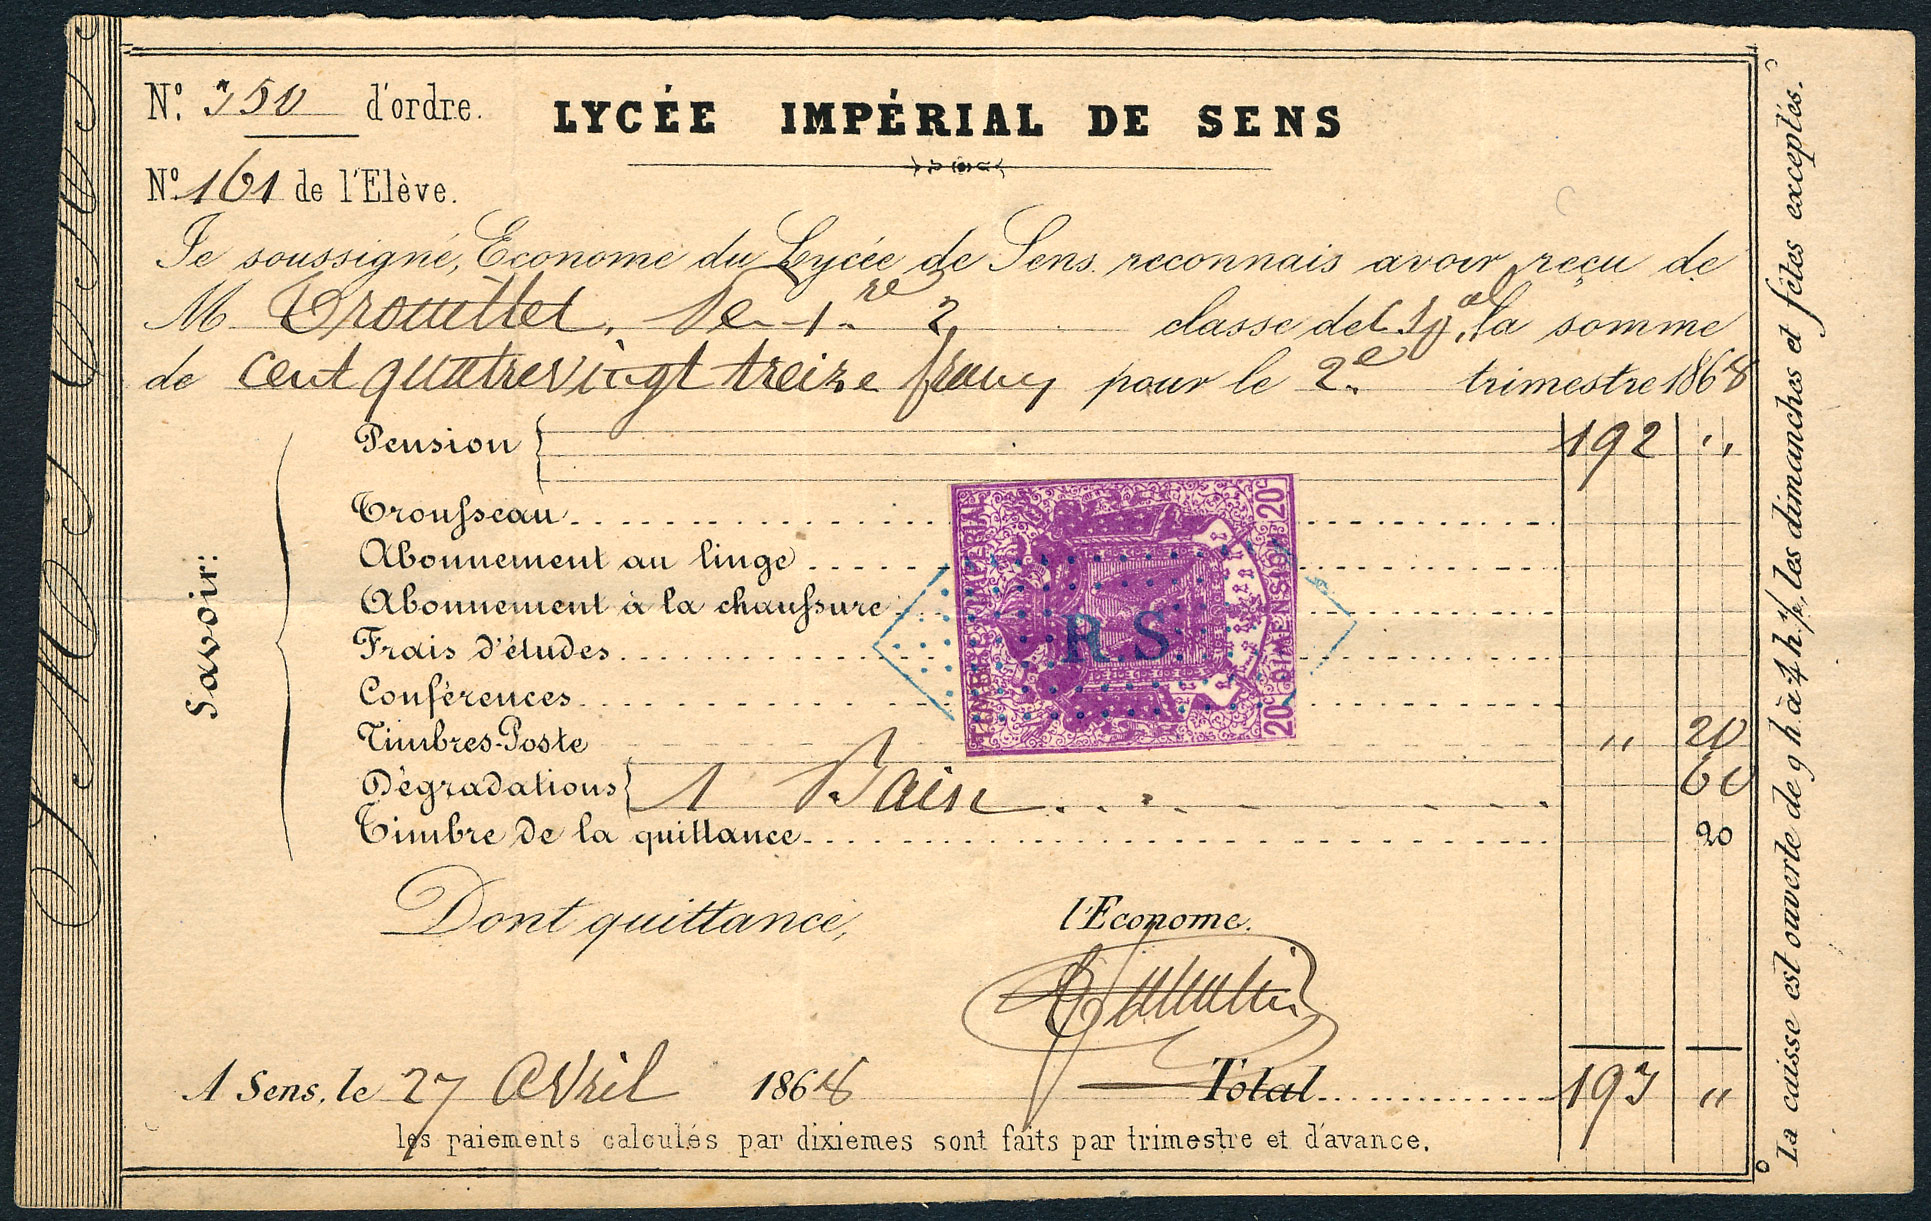 N.º 350 d'ordre.
LYCÉE IMPÉRIAL DE SENS
N.º 161 de l'Elève.
Je soussigné, Econome du Lycée de Sens reconnais avoir reçu de
M Trouillet. 1.re 2 classe de la somme
de cent quatrevingt treize francs pour le 2.e trimestre 1868
Savoir:
Pension 192 "
Trousseau
Abonnement au linge
Abonnement à la chaussure
Frais d'études
Conférences
Timbres-Poste " 20
Dégradations 1 Bain 60
Timbre de la quittance 20
TIMBRE IMPERIAL
20c DIMENSION 20c
R.S.
Dont quittance,
l'Econome.
A Sens, le 27 Avril 1868
Total 193 "
les paiements calculés par dixiemes sont faits par trimestre et d'avance.
La caisse est ouverte de 9 h. à 4 h. ½, les dimanches et fêtes exceptés.